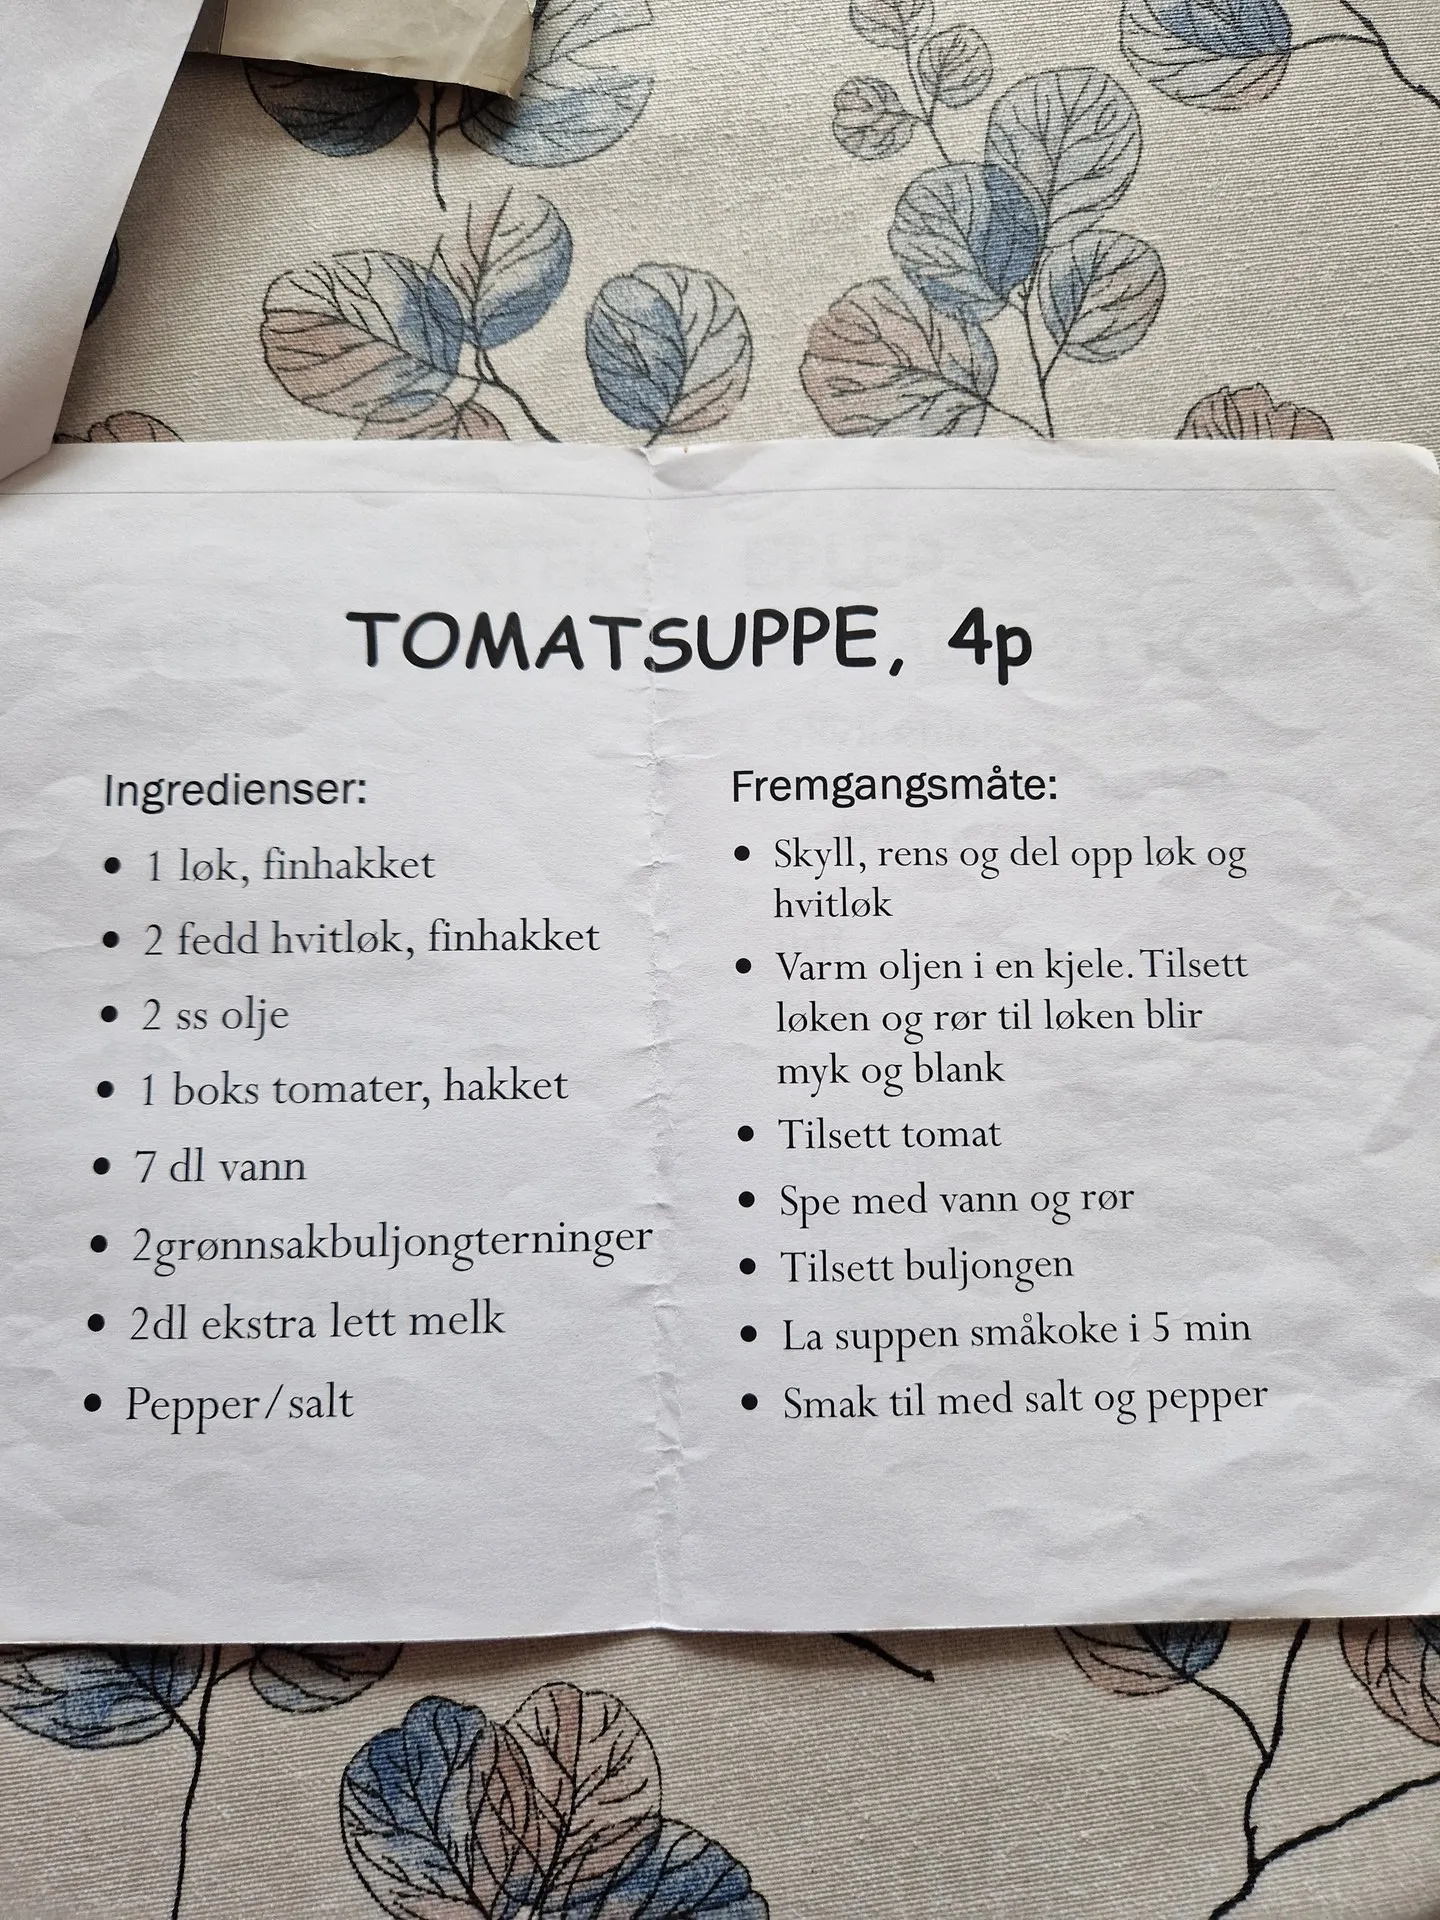 TOMATSUPPE, 4p
Ingredienser:
• 1 løk, finhakket
• 2 fedd hvitløk, finhakket
• 2 ss olje
• 1 boks tomater, hakket
• 7 dl vann
• 2grønnsakbuljongterninger
• 2dl ekstra lett melk
• Pepper/salt
Fremgangsmåte:
• Skyll, rens og del opp løk og
hvitløk
• Varm oljen i en kjele. Tilsett
løken og rør til løken blir
myk og blank
• Tilsett tomat
• Spe med vann og rør
• Tilsett buljongen
• La suppen småkoke i 5 min
• Smak til med salt og pepper